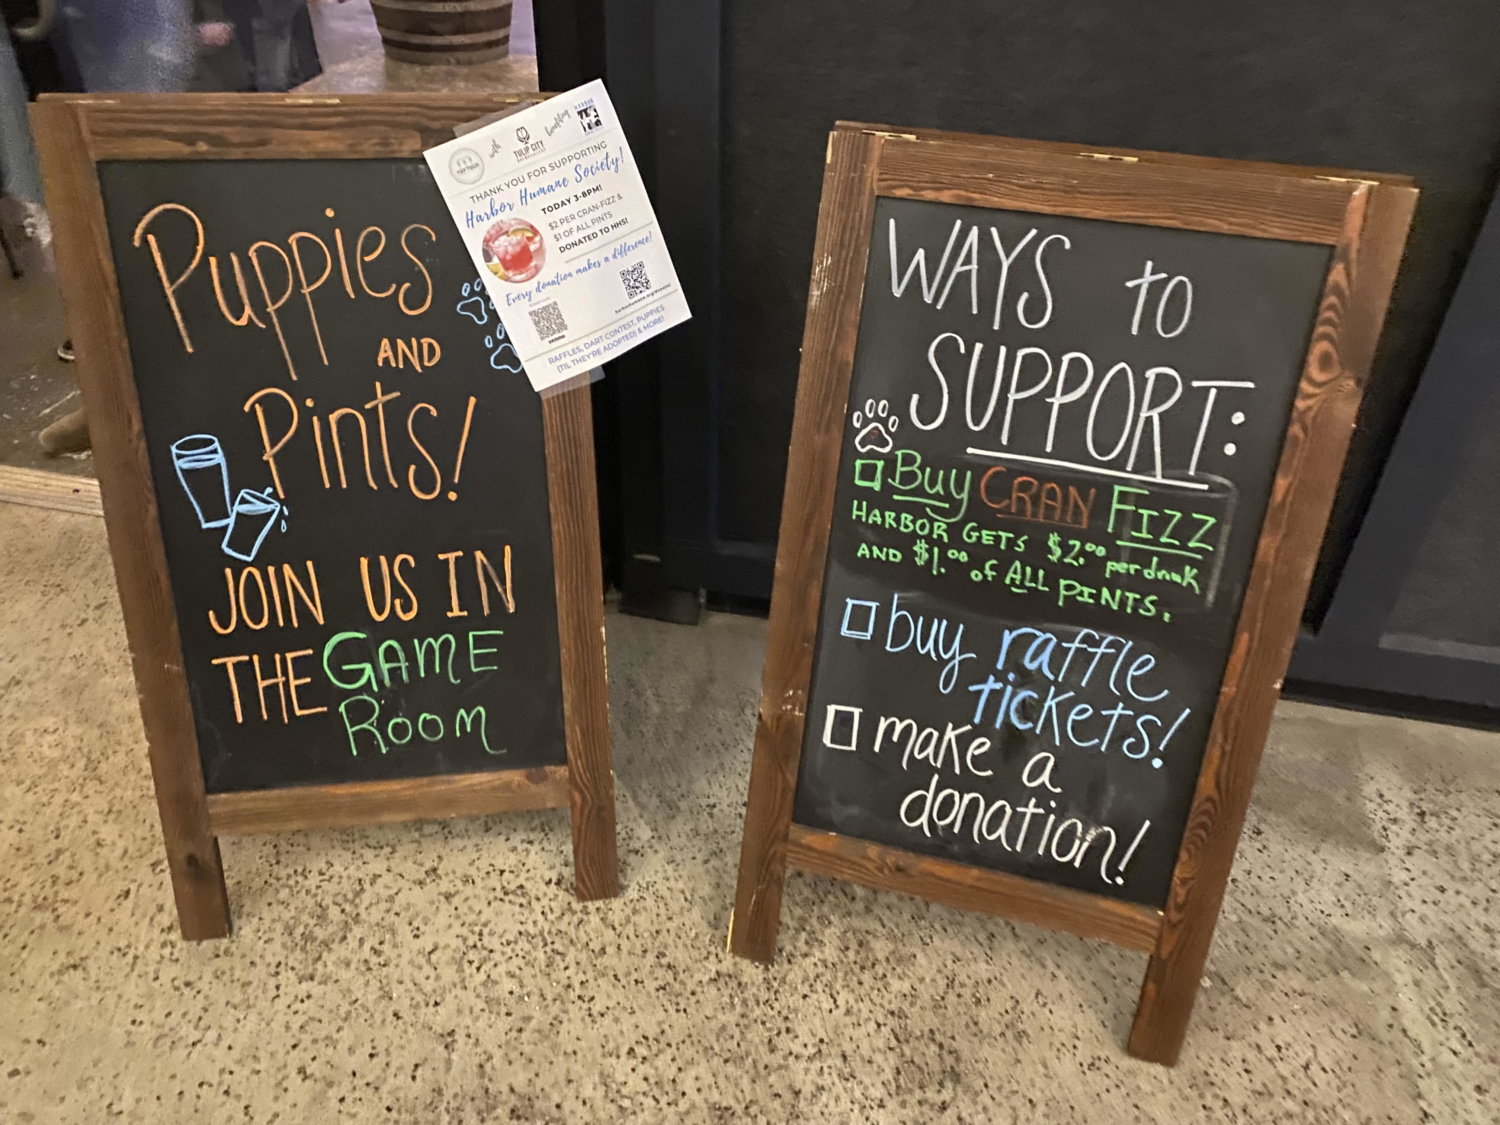 Puppies
AND
Pints!
JOIN US IN
THE GAME
ROOM
with
TULIP CITY
benefiting
HARBOR
THANK YOU FOR SUPPORTING
Harbor Humane Society!
TODAY 3-8PM!
$2 PER CRAN-FIZZ &
$1 OF ALL PINTS
DONATED TO HHS!
Every donation makes a difference!
venmo
RAFFLES, DART CONTEST, PUPPIES
(TIL THEY'RE ADOPTED) & MORE!
WAYS to
SUPPORT:
Buy CRAN FIZZ
HARBOR GETS $2.00 per drink
AND $1.00 of ALL PINTS.
buy raffle
tickets!
make a
donation!